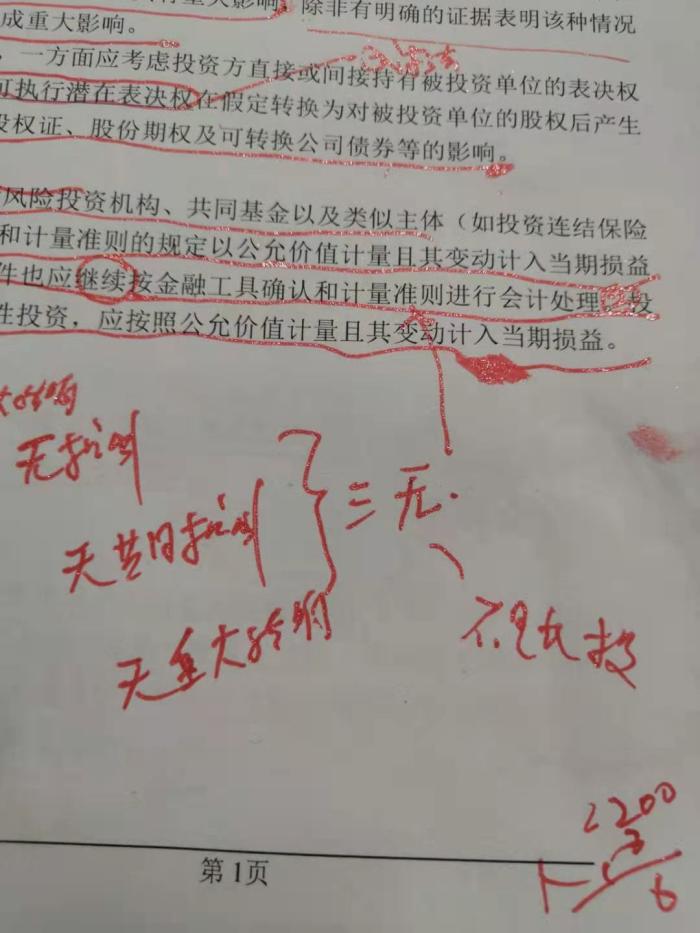 有重大影响，除非有明确的证据表明该种情况
成重大影响。
，一方面应考虑投资方直接或间接持有被投资单位的表决权
可执行潜在表决权在假定转换为对被投资单位的股权后产生
股权证、股份期权及可转换公司债券等的影响。
风险投资机构、共同基金以及类似主体（如投资连结保险
和计量准则的规定以公允价值计量且其变动计入当期损益
件也应继续按金融工具确认和计量准则进行会计处理。投
性投资，应按照公允价值计量且其变动计入当期损益。
无控制
无共同控制
三无.
无重大影响
不是长投
第1页
2200
6